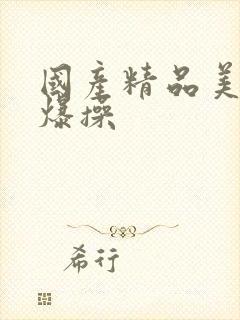 國產精品美
爆操
希行